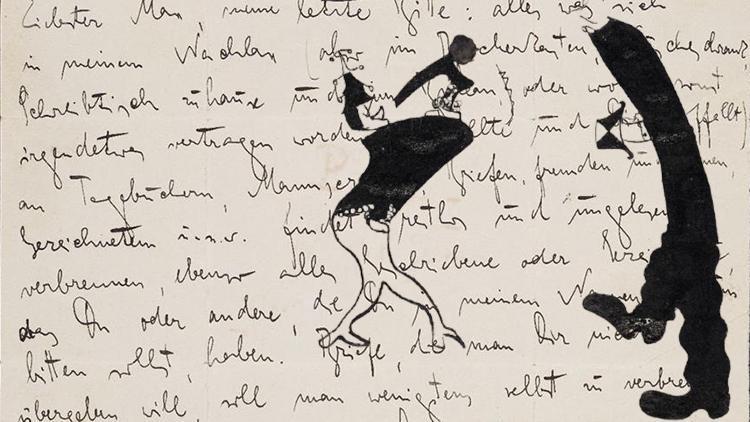 Liebster Max, meine letzte Bitte: alles was sich
in meinem Nachlass (also im Bücherkasten,
Schreibtisch zuhause und im oder wo sonst
irgendetwas vertragen worden sollte und
an Tagebüchern, Briefen, fremden und
Gezeichnetem u.s.w. findet restlos und ungelesen
verbrennen, ebenso alles Geschriebene oder
das Du oder andere, die Du in meinem Namen
bitten sollst, haben. Briefe, die man Dir
übergeben will, soll man wenigstens selbst zu